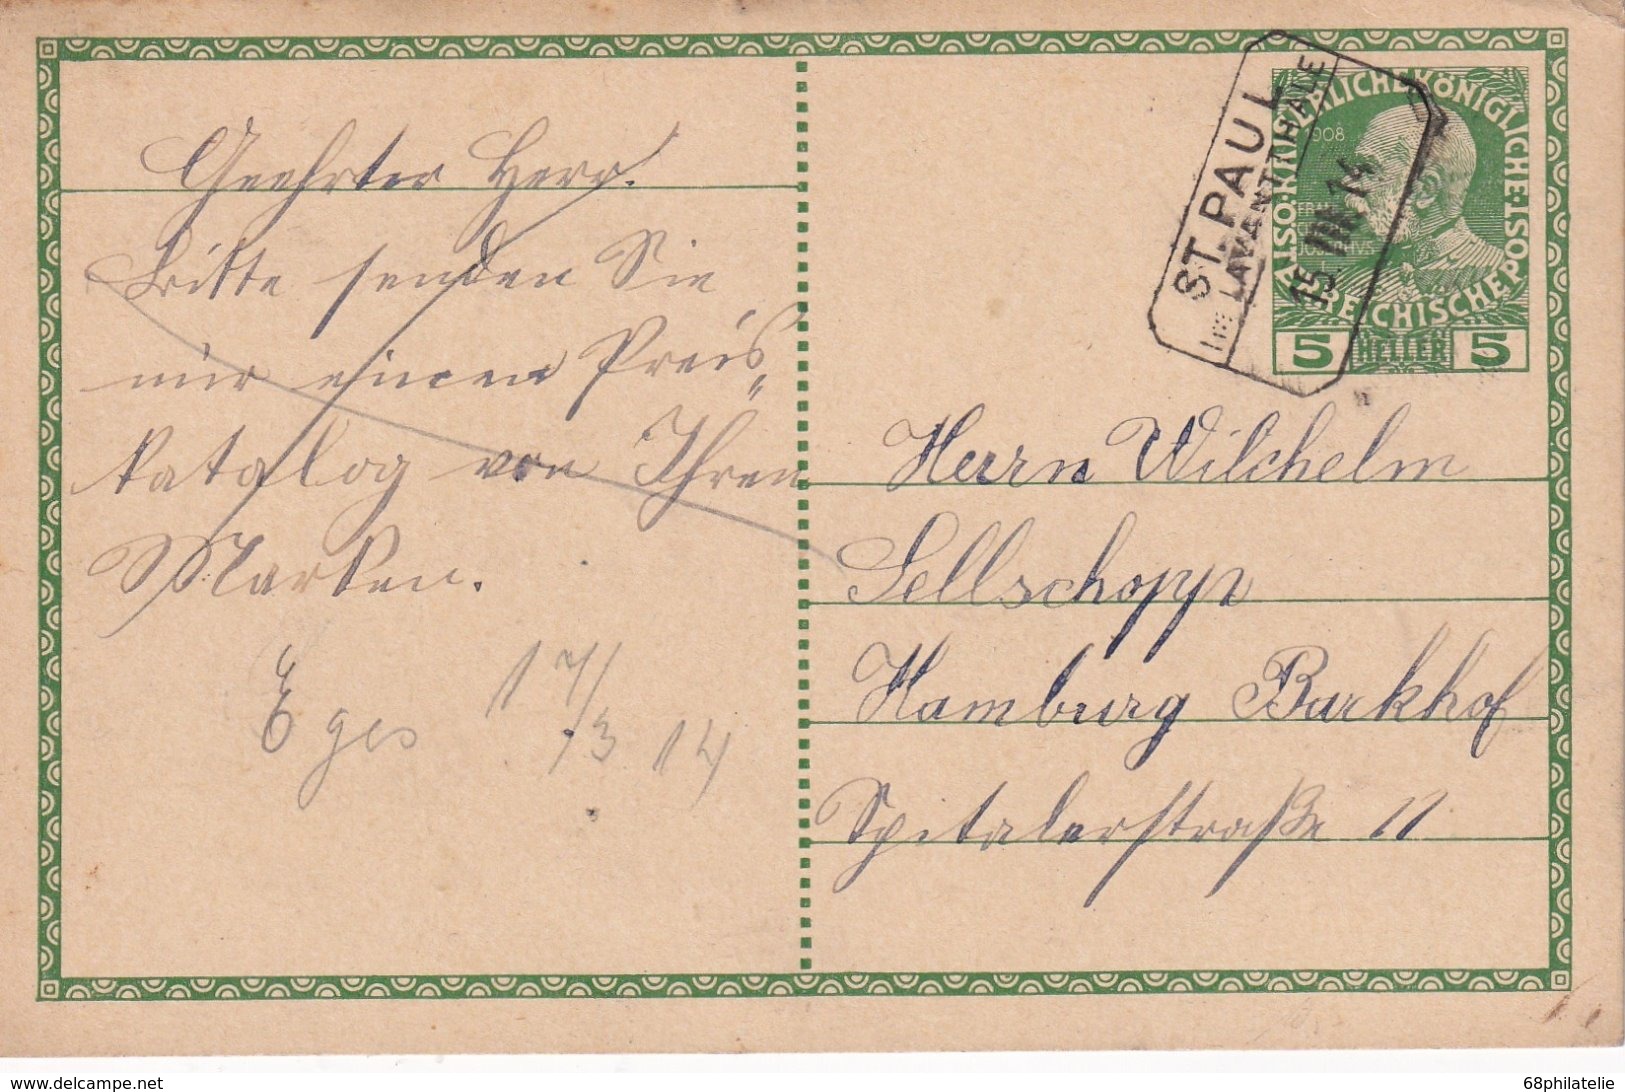 Geehrter Herr!
Bitte senden Sie
mir einen Preis„
katalog von Ihren
Marken.
17/
/3 14
ST. PAUL
IM LAVANTTHALE
15 III 14
KAISERLICHE KÖNIGLICHE
ÖSTERREICHISCHE POST
1908
5 HELLER 5
Herrn Wilchelm
Sellschopp
Hamburg Barkhof
Spitalerstraße 11
www.delcampe.net
68philatelie